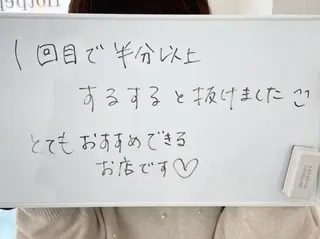 1回目で半分以上
するすると抜けました
とてもおすすめできる
お店です♡